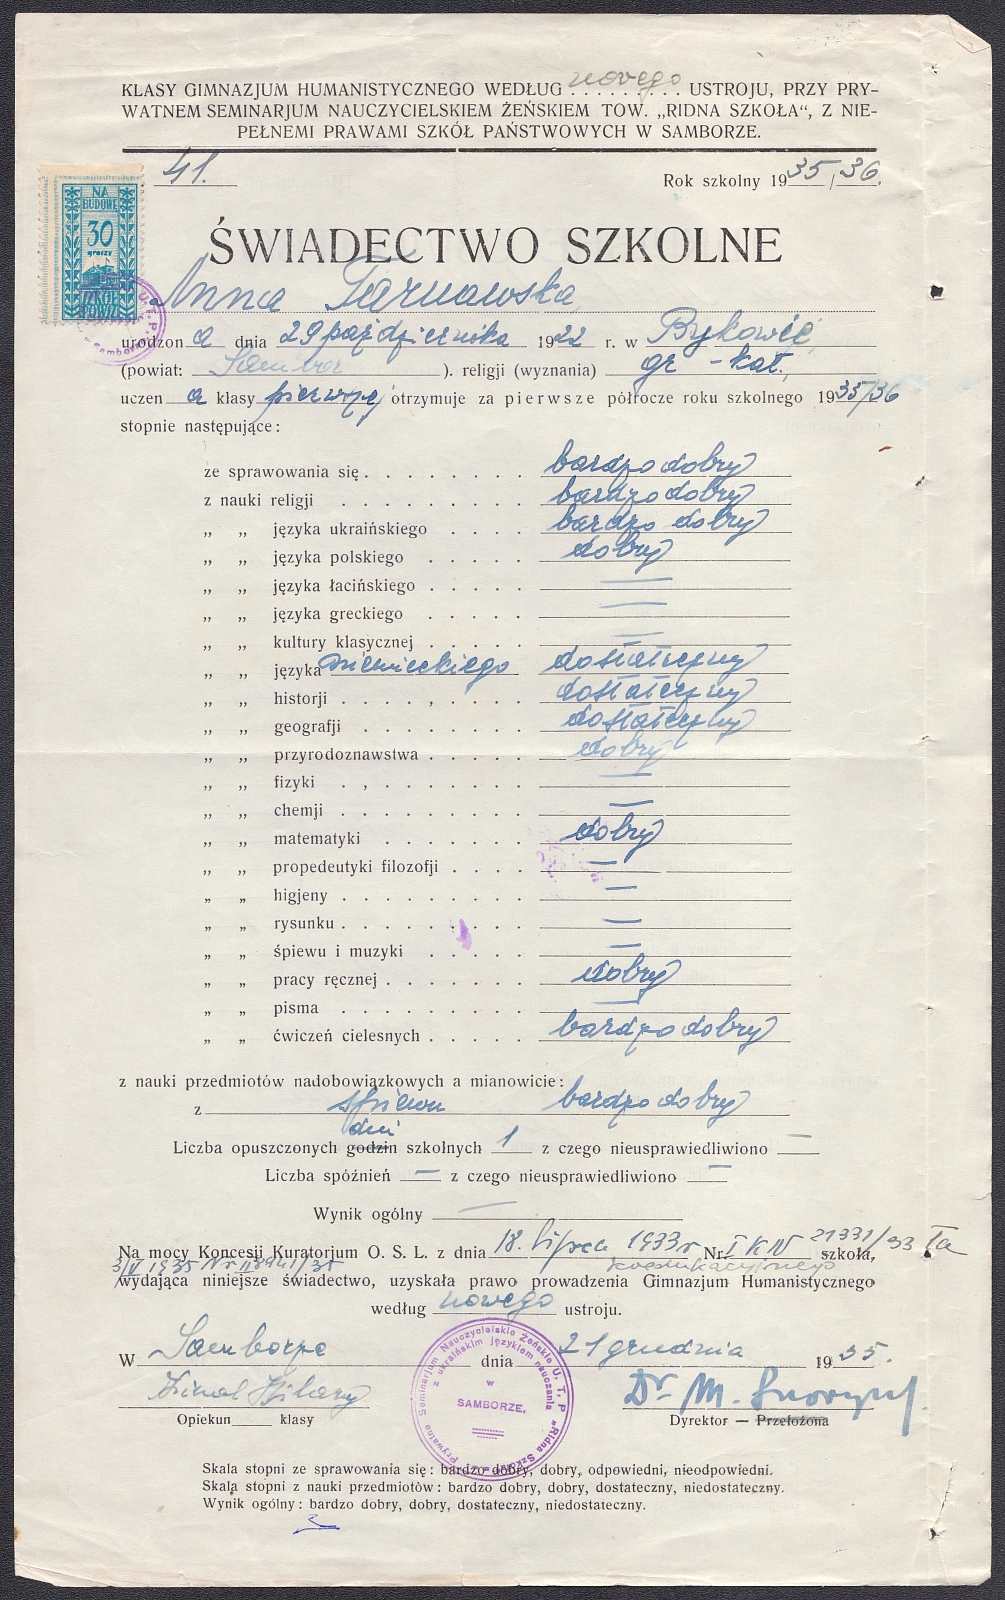 KLASY GIMNAZJUM HUMANISTYCZNEGO WEDŁUG nowego USTROJU, PRZY PRY-
WATNEM SEMINARJUM NAUCZYCIELSKIEM ŻEŃSKIEM TOW. „RIDNA SZKOŁA“, Z NIE-
PEŁNEMI PRAWAMI SZKÓŁ PAŃSTWOWYCH W SAMBORZE.
41.
Rok szkolny 1935/36.
NA
BUDOWĘ
30
groszy
SZKÓŁ
POWSZ
ŚWIADECTWO SZKOLNE
Anna Tarnawska
urodzona dnia 29 października 1922 r. w Bykowie,
(powiat: Sambor ). religji (wyznania) gr-kat.,
uczen a klasy pierwszej otrzymuje za pierwsze półrocze roku szkolnego 1935/36
stopnie następujące:
ze sprawowania się . . . . . . . bardzo dobry
z nauki religji . . . . . . . bardzo dobry
„ „ języka ukraińskiego . . . . bardzo dobry
„ „ języka polskiego . . . . . dobry
„ „ języka łacińskiego . . . . . —
„ „ języka greckiego . . . . . —
„ „ kultury klasycznej . . . . . —
„ „ języka niemieckiego dostateczny
„ „ historji . . . . . . . dostateczny
„ „ geografji . . . . . . . dostateczny
„ „ przyrodoznawstwa . . . . . dobry
„ „ fizyki . . . . . . . . —
„ „ chemji . . . . . . . . —
„ „ matematyki . . . . . . dobry
„ „ propedeutyki filozofji . . . . —
„ „ higjeny . . . . . . . . —
„ „ rysunku . . . . . . . . —
„ „ śpiewu i muzyki . . . . . —
„ „ pracy ręcznej . . . . . . dobry
„ „ pisma . . . . . . . . —
„ „ ćwiczeń cielesnych . . . . . bardzo dobry
z nauki przedmiotów nadobowiązkowych a mianowicie:
z śpiewu bardzo dobry
dni
Liczba opuszczonych godzin szkolnych 1 z czego nieusprawiedliwiono —
Liczba spóźnień — z czego nieusprawiedliwiono —
Wynik ogólny —
Na mocy Koncesji Kuratorjum O. S. L. z dnia 18. lipca 1933 r Nr. I K IV 21331/33 szkoła,
wydająca niniejsze świadectwo, uzyskała prawo prowadzenia koedukacyjnego Gimnazjum Humanistycznego
według nowego ustroju.
W Samborze dnia 21 grudnia 1935.
Dr M.
Opiekun klasy
Dyrektor — Przełożona
Prywatne Seminarjum Nauczycielskie Żeńskie U. T. P. „Ridna Szkoła“
z ukraińskim językiem nauczania
w
SAMBORZE.
Skala stopni ze sprawowania się: bardzo dobry, dobry, odpowiedni, nieodpowiedni.
Skala stopni z nauki przedmiotów: bardzo dobry, dobry, dostateczny, niedostateczny.
Wynik ogólny: bardzo dobry, dobry, dostateczny, niedostateczny.